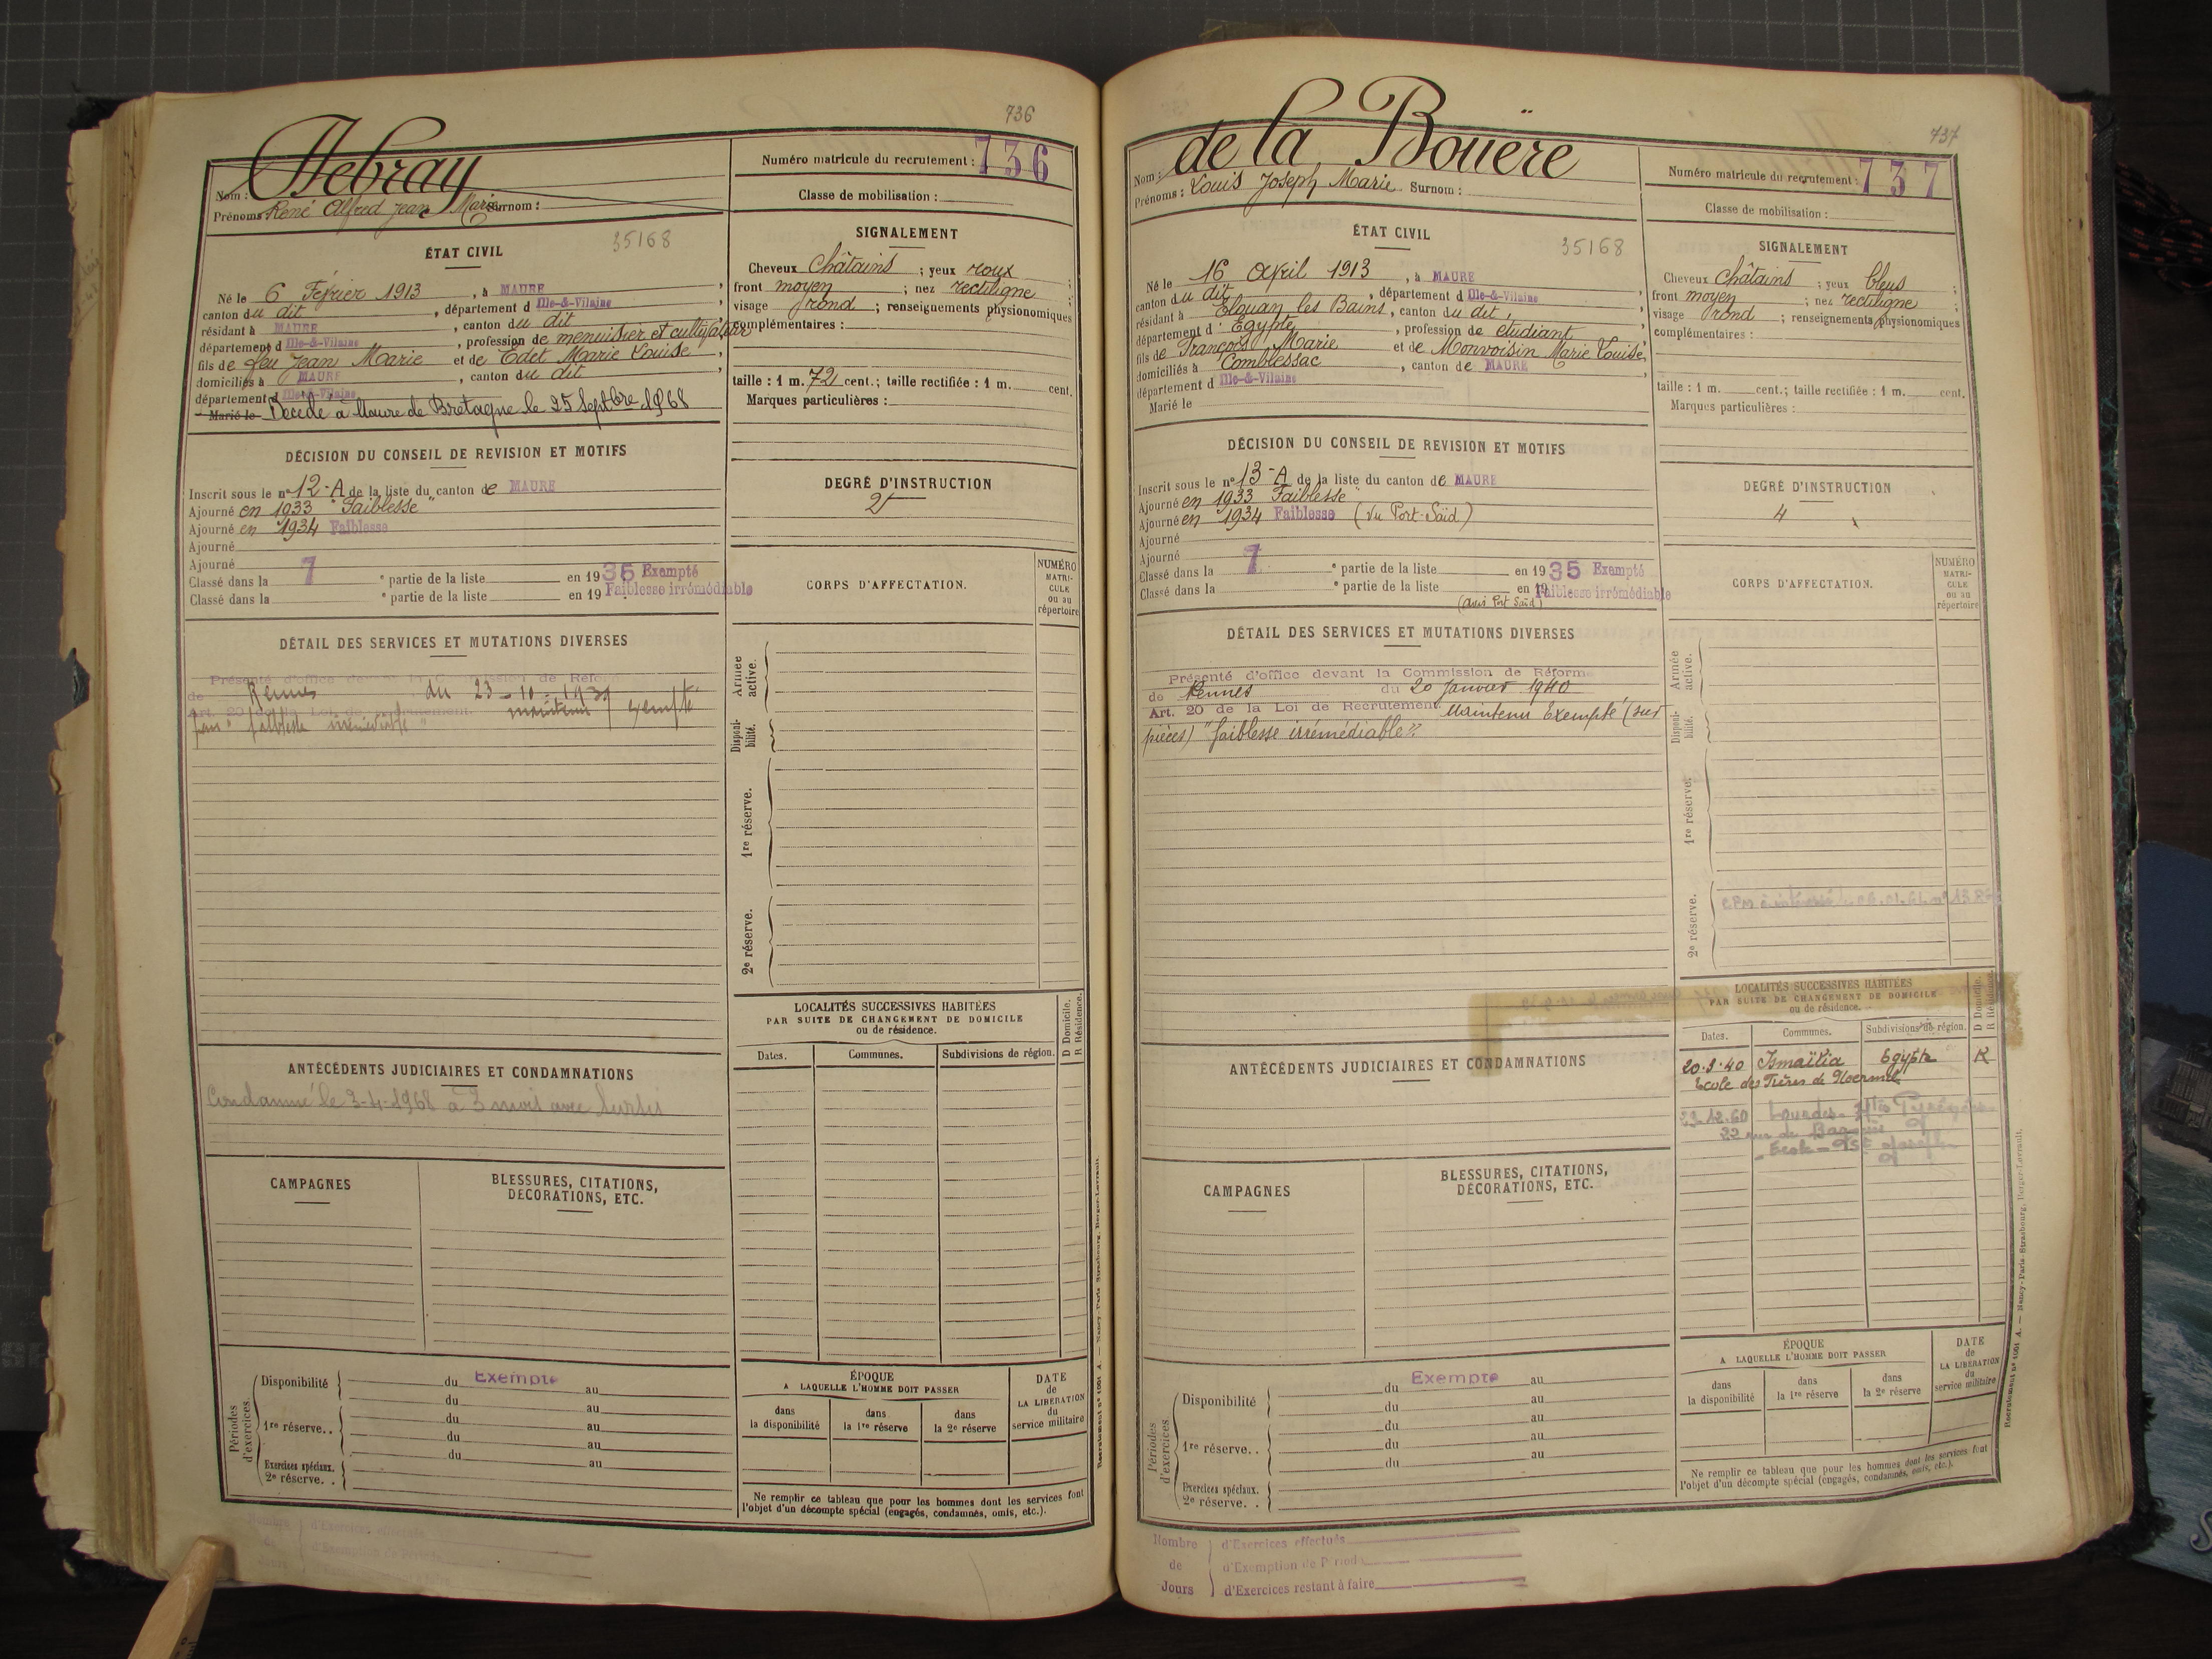 736
Nom : Hebray
Prénoms : René Alfred Jean Marie Surnom :
Numéro matricule du recrutement : 736
Classe de mobilisation :
ÉTAT CIVIL
35168
Né le 6 Février 1913, à MAURE
canton du dit, département d Ille-&-Vilaine
résidant à MAURE, canton du dit
département d Ille-&-Vilaine, profession de menuisier et cultivateur
fils de feu Jean Marie et de Edet Marie Louise
domiciliés à MAURE, canton du dit
département d Ille-&-Vilaine
Marié le Décédé à Maure de Bretagne le 25 Septbre 1968
SIGNALEMENT
Cheveux Châtains ; yeux roux ;
front moyen ; nez rectiligne ;
visage rond ; renseignements physionomiques
complémentaires :
taille : 1 m. 72 cent.; taille rectifiée : 1 m. cent.
Marques particulières :
DÉCISION DU CONSEIL DE REVISION ET MOTIFS
Inscrit sous le nº 12-A de la liste du canton de MAURE
Ajourné en 1933 "Faiblesse"
Ajourné en 1934 Faiblesse
Ajourné
Ajourné
Classé dans la 1 e partie de la liste en 1935 Exempté
Classé dans la e partie de la liste en 19 Faiblesse irrémédiable
DEGRÉ D'INSTRUCTION
2
CORPS D'AFFECTATION.
NUMÉRO MATRICULE ou au répertoire
DÉTAIL DES SERVICES ET MUTATIONS DIVERSES
Présenté d'office devant la Commission de Réforme
de Rennes du 23-10-1939
Art. 20 de la Loi de Recrutement. maintenu exempté
pour "faiblesse irrémédiable"
Armée active.
Disponibilité.
1re réserve.
2e réserve.
LOCALITÉS SUCCESSIVES HABITÉES
PAR SUITE DE CHANGEMENT DE DOMICILE
ou de résidence.
D Domicile.
R Résidence.
Dates. Communes. Subdivisions de région.
ANTÉCÉDENTS JUDICIAIRES ET CONDAMNATIONS
Condamné le 3-4-1968 à 3 mois avec sursis
CAMPAGNES
BLESSURES, CITATIONS,
DÉCORATIONS, ETC.
Périodes d'exercices.
Disponibilité du Exempté au
du au
1re réserve.. du au
du au
du au
Exercices spéciaux.
2e réserve. .
ÉPOQUE
A LAQUELLE L'HOMME DOIT PASSER
dans la disponibilité
dans la 1re réserve
dans la 2e réserve
DATE de LA LIBÉRATION du service militaire
Ne remplir ce tableau que pour les hommes dont les services font
l'objet d'un décompte spécial (engagés, condamnés, omis, etc.).
Nombre de Jours
d'Exercices effectués
d'Exemption de Période
737
Nom : de la Bouëre
Prénoms : Louis Joseph Marie Surnom :
Numéro matricule du recrutement : 737
Classe de mobilisation :
ÉTAT CIVIL
35168
Né le 16 Avril 1913, à MAURE
canton du dit, département d Ille-&-Vilaine
résidant à Elouan les Bains, canton du dit,
département d' Egypte, profession de étudiant
fils de François Marie et de Monvoisin Marie Louise,
domiciliés à Comblessac, canton de MAURE
département d Ille-&-Vilaine
Marié le
SIGNALEMENT
Cheveux châtains ; yeux bleus ;
front moyen ; nez rectiligne ;
visage rond ; renseignements physionomiques
complémentaires :
taille : 1 m. cent.; taille rectifiée : 1 m. cent.
Marques particulières :
DÉCISION DU CONSEIL DE REVISION ET MOTIFS
Inscrit sous le nº 13-A de la liste du canton de MAURE
Ajourné en 1933 "Faiblesse"
Ajourné en 1934 Faiblesse (Vu Port-Saïd)
Ajourné
Ajourné
Classé dans la 1 e partie de la liste en 1935 Exempté
Classé dans la e partie de la liste en 19 Faiblesse irrémédiable
(avis Port Saïd)
DEGRÉ D'INSTRUCTION
4
CORPS D'AFFECTATION.
NUMÉRO MATRICULE ou au répertoire
DÉTAIL DES SERVICES ET MUTATIONS DIVERSES
Présenté d'office devant la Commission de Réforme
de Rennes du 20 Janvier 1940
Art. 20 de la Loi de Recrutement. Maintenu Exempté (sur
pièces) "faiblesse irrémédiable"
Armée active.
Disponibilité.
1re réserve.
2e réserve.
LOCALITÉS SUCCESSIVES HABITÉES
PAR SUITE DE CHANGEMENT DE DOMICILE
ou de résidence.
D Domicile.
R Résidence.
Dates. Communes. Subdivisions de région.
20.3.40 Ismaïlia Egypte R
Ecole des Frères de Ploermel
22.12.60 Lourdes - Htes Pyrénées
22 rue de Bagnères
Ecole - St Joseph
ANTÉCÉDENTS JUDICIAIRES ET CONDAMNATIONS
CAMPAGNES
BLESSURES, CITATIONS,
DÉCORATIONS, ETC.
Périodes d'exercices
Disponibilité du Exempté au
du au
1re réserve. . du au
du au
du au
Exercices spéciaux.
2e réserve. .
ÉPOQUE
A LAQUELLE L'HOMME DOIT PASSER
dans la disponibilité
dans la 1re réserve
dans la 2e réserve
DATE de LA LIBÉRATION du service militaire
Ne remplir ce tableau que pour les hommes dont les services font
l'objet d'un décompte spécial (engagés, condamnés, omis, etc.).
Nombre de Jours
d'Exercices effectués
d'Exemption de Période
d'Exercices restant à faire
Recrutement nº 1001 A. — Nancy-Paris-Strasbourg, Berger-Levrault.